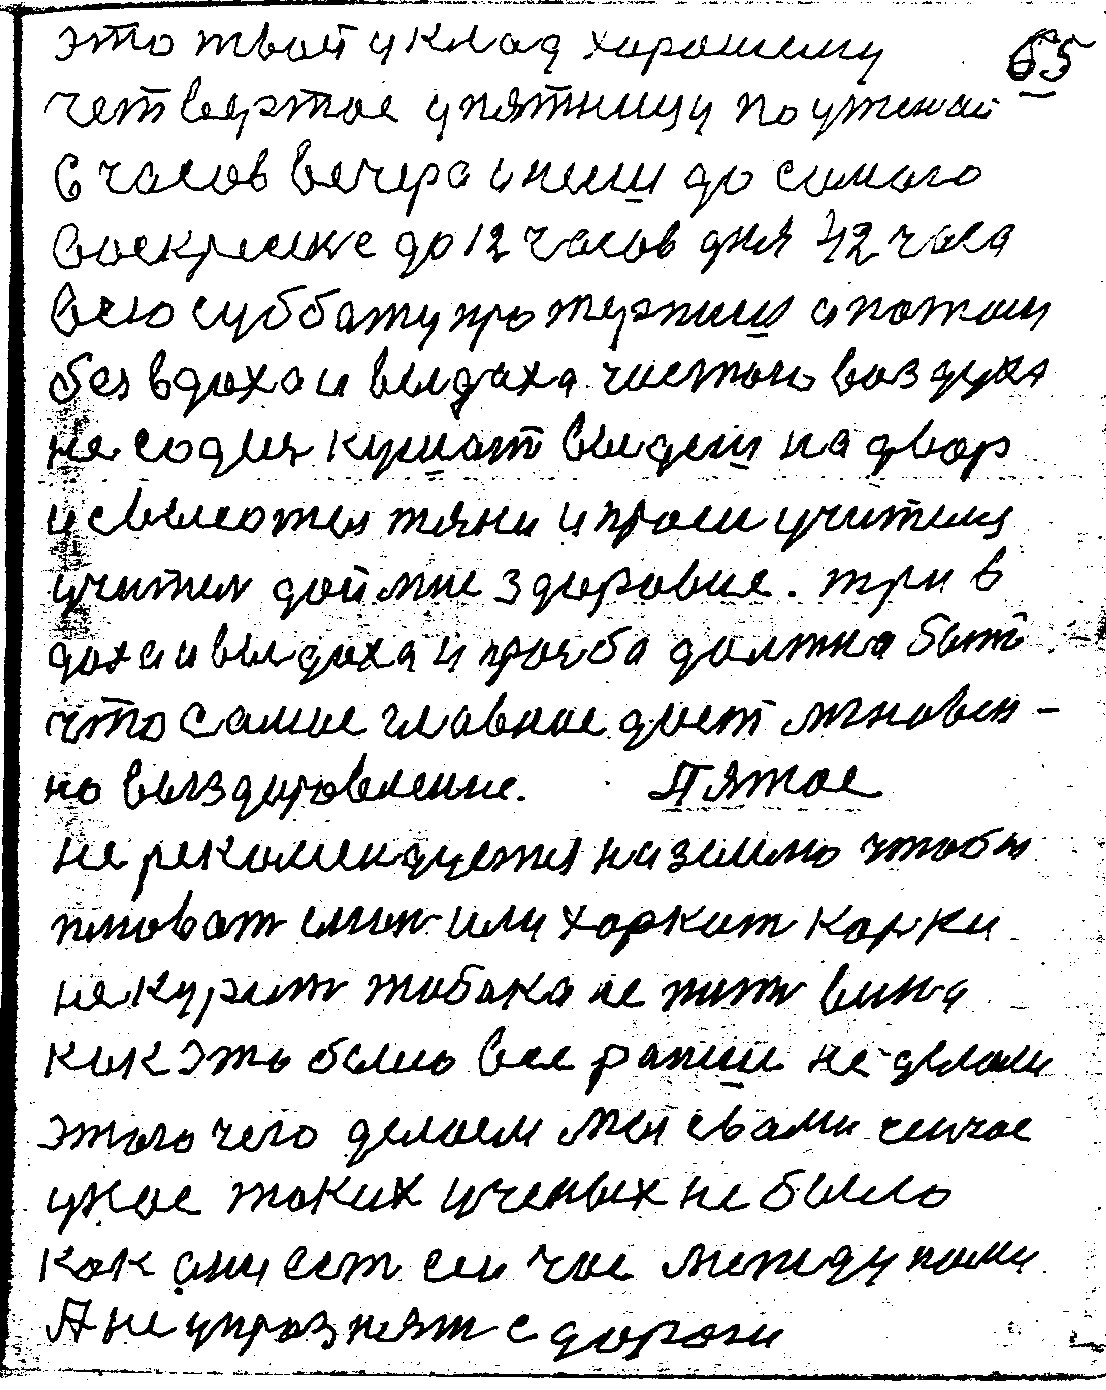 это твой уклад хорошему 65
четвертое у пятницу поужинай
6 часов вечера и неш до самого
воскресике до 12 часов дня 42 часа
всю субботу протерпиш а потом
без вдоха и выдаха чистого воздуха
не содця кушат выдеш на двор
и свысотел тяни и проси учителя
учител дай мне здоровие. три в
доха и выдоха и прозба должна быт
что самое главное дает мгновен-
но выздоровление. Пятое
не рекомендуется на землю чтобы
плюват слюн или харкат карки
не курит табака не пит вина
как это было все ранши не делали
этого чего делаем мы с вами сейчас
у нас таких ученых не было
как они ест сей час между нами
А не упразнят с дороги